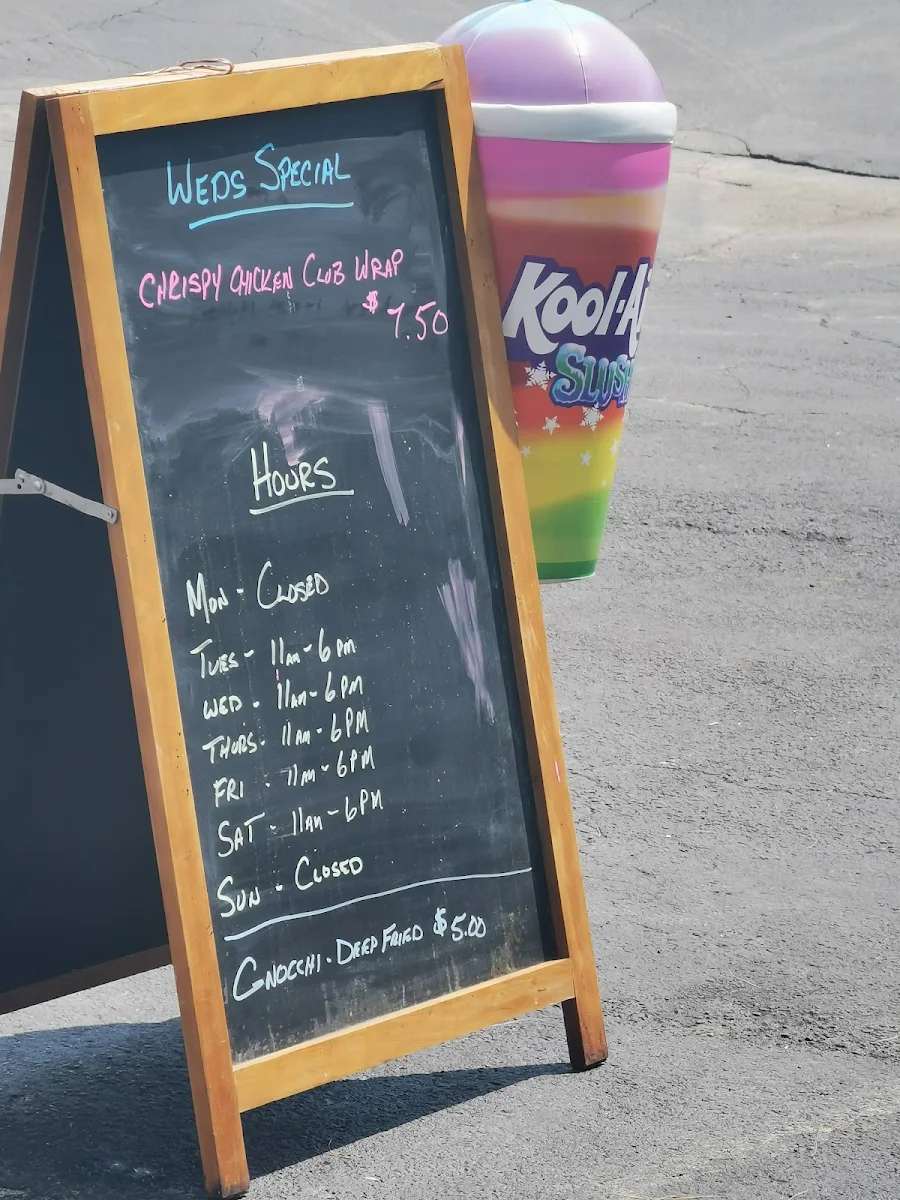 WEDS SPECIAL
CHRISPY CHICKEN CLUB WRAP
$7.50
HOURS
MON - CLOSED
TUES - 11AM - 6PM
WED - 11AM - 6PM
THURS - 11AM - 6PM
FRI - 11AM - 6PM
SAT - 11AM - 6PM
SUN - CLOSED
GNOCCHI - DEEP FRIED $5.00
Kool-A
SLUS